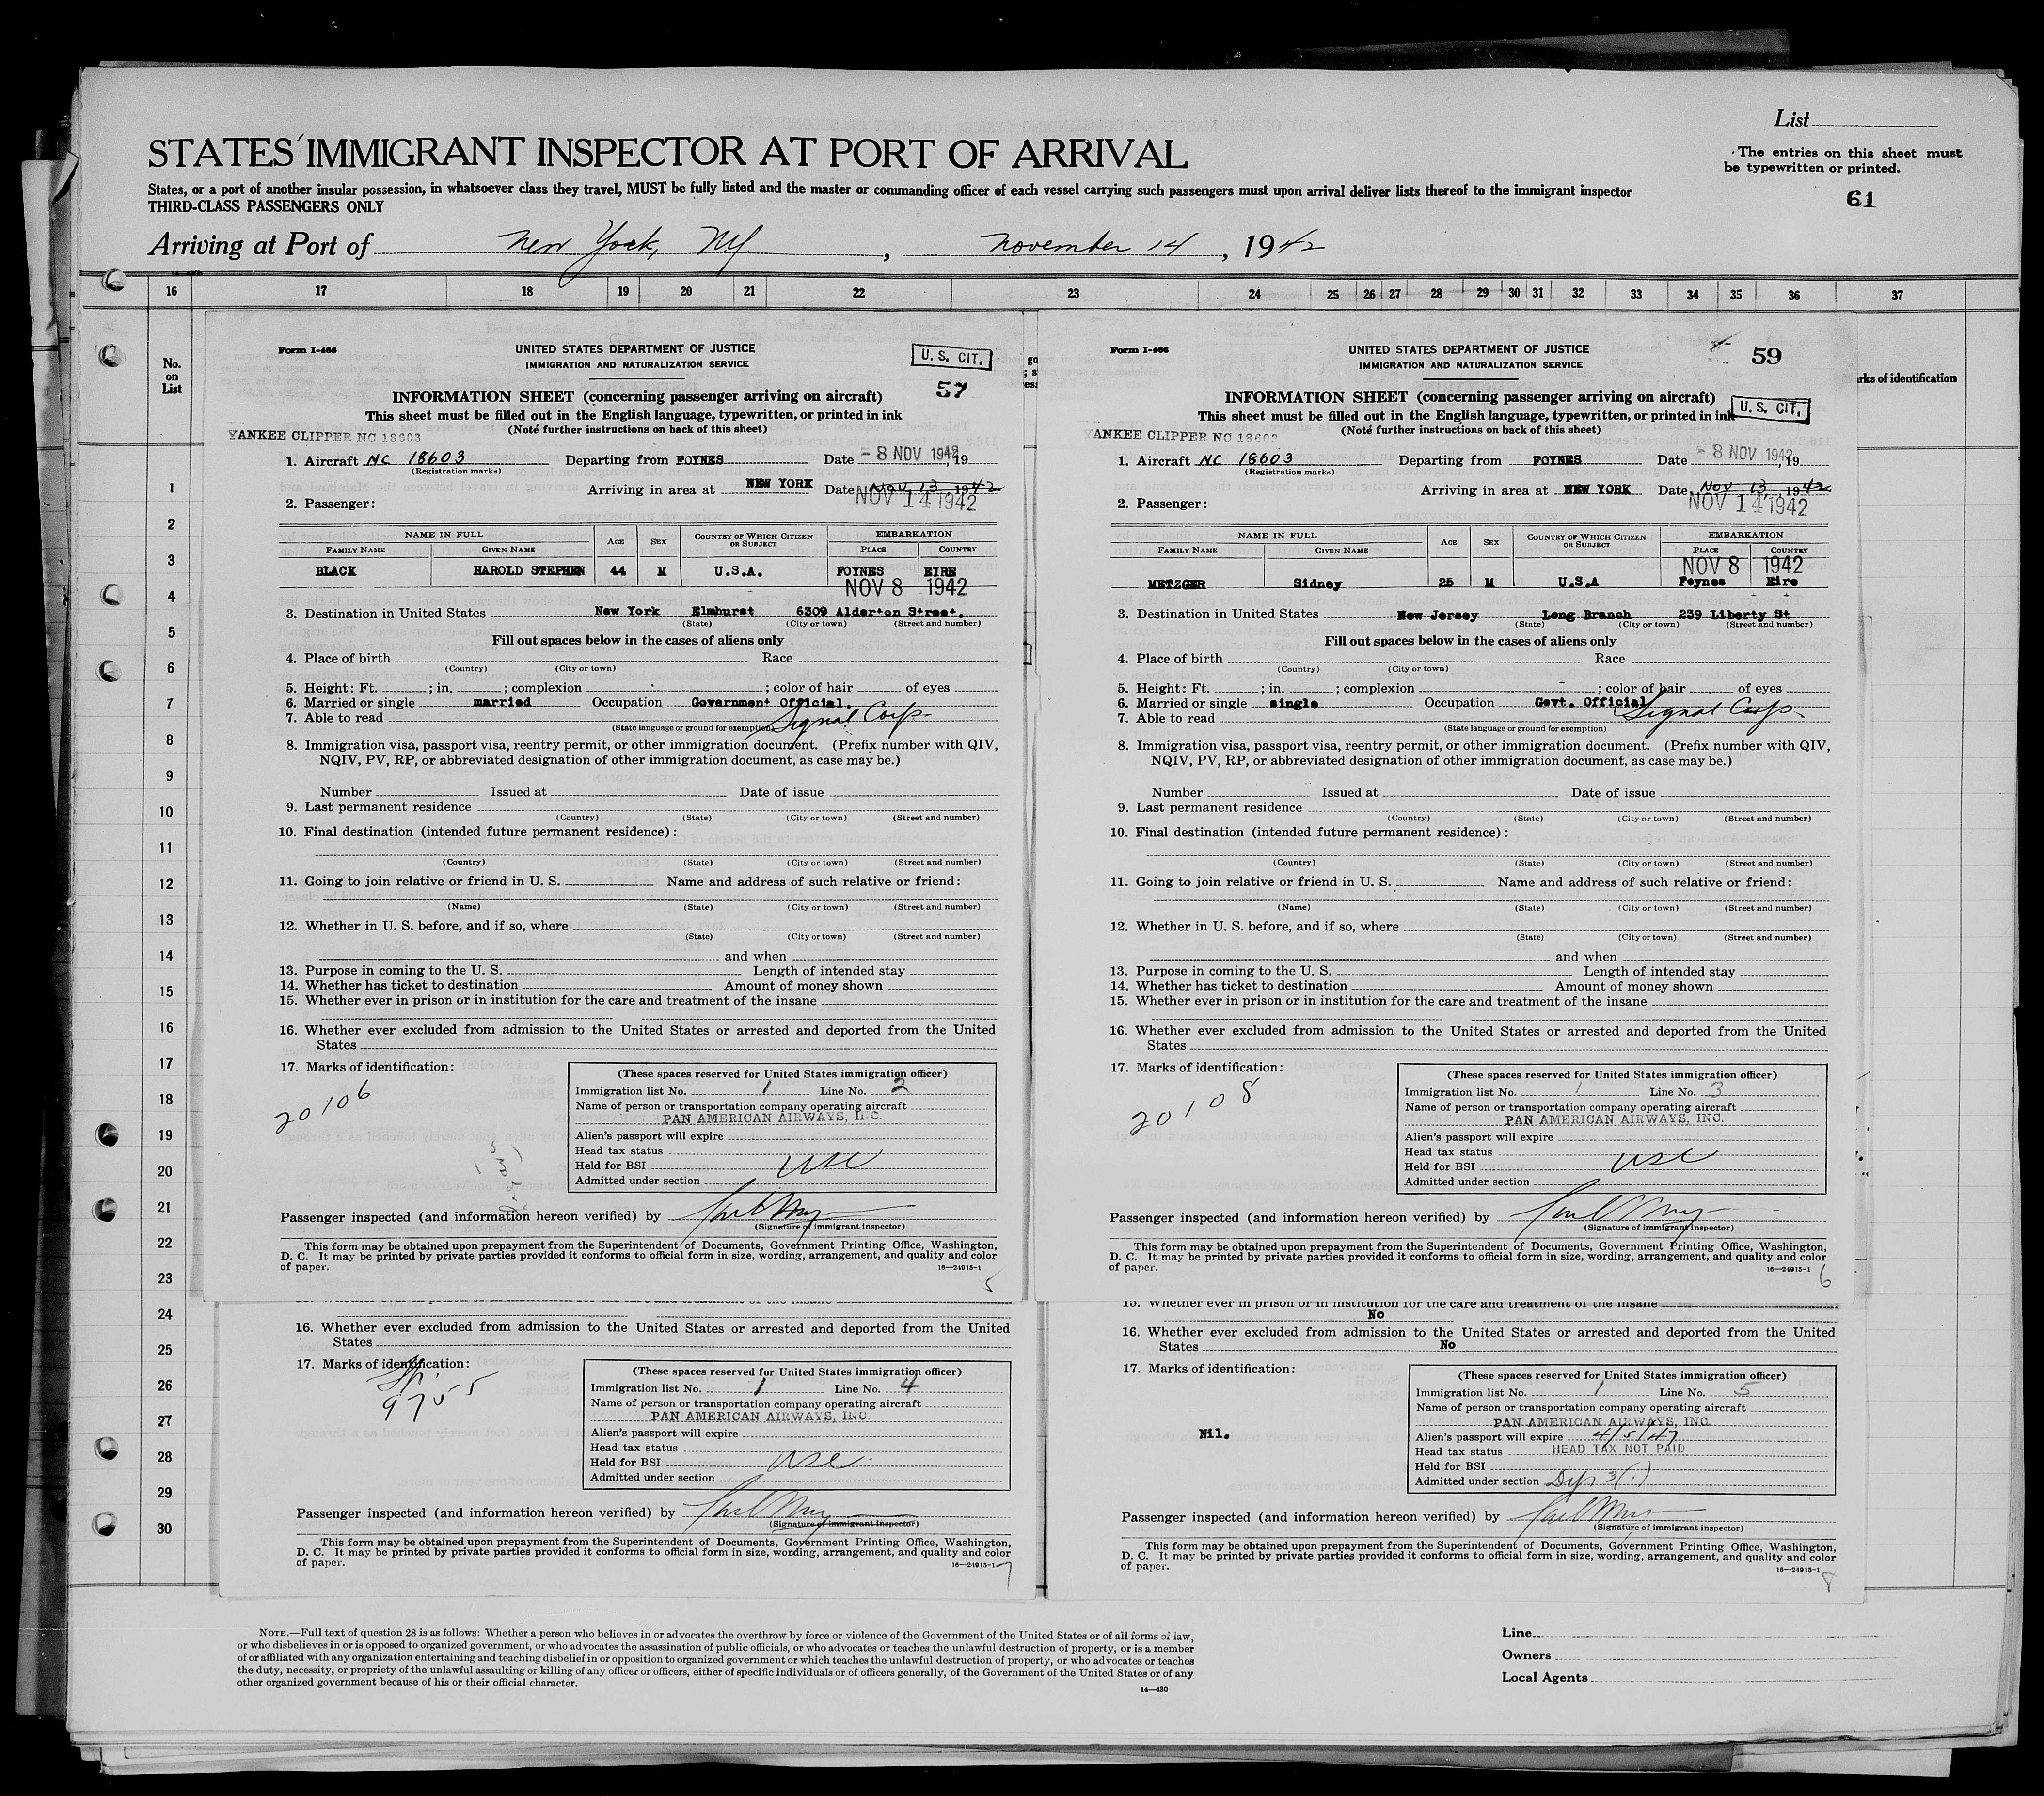 List
STATES IMMIGRANT INSPECTOR AT PORT OF ARRIVAL
The entries on this sheet must
be typewritten or printed.
States, or a port of another insular possession, in whatsoever class they travel, MUST be fully listed and the master or commanding officer of each vessel carrying such passengers must upon arrival deliver lists thereof to the immigrant inspector
THIRD-CLASS PASSENGERS ONLY
61
Arriving at Port of New York, NY, November 14, 1942
16 17 18 19 20 21 22 23 24 25 26 27 28 29 30 31 32 33 34 35 36 37
No.
on
List
rks of identification
1
2
3
4
5
6
7
8
9
10
11
12
13
14
15
16
17
18
19
20
21
22
23
24
25
26
27
28
29
30
Form I-466
UNITED STATES DEPARTMENT OF JUSTICE
IMMIGRATION AND NATURALIZATION SERVICE
U. S. CIT.
57
INFORMATION SHEET (concerning passenger arriving on aircraft)
This sheet must be filled out in the English language, typewritten, or printed in ink
(Note further instructions on back of this sheet)
YANKEE CLIPPER NC 18603
1. Aircraft NC 18603 Departing from FOYNES Date - 8 NOV 1942, 19
(Registration marks)
Arriving in area at NEW YORK Date Nov 13 1942
NOV 14 1942
2. Passenger:
NAME IN FULL AGE SEX COUNTRY OF WHICH CITIZEN OR SUBJECT EMBARKATION
FAMILY NAME GIVEN NAME PLACE COUNTRY
BLACK HAROLD STEPHEN 44 M U.S.A. FOYNES EIRE
NOV 8 1942
3. Destination in United States New York Elmhurst 6309 Alderton Street.
(State) (City or town) (Street and number)
Fill out spaces below in the cases of aliens only
4. Place of birth Race
(Country) (City or town)
5. Height: Ft. ; in. ; complexion ; color of hair of eyes
6. Married or single married Occupation Government Official.
7. Able to read Signal Corps
(State language or ground for exemption)
8. Immigration visa, passport visa, reentry permit, or other immigration document. (Prefix number with QIV,
NQIV, PV, RP, or abbreviated designation of other immigration document, as case may be.)
Number Issued at Date of issue
9. Last permanent residence
(Country) (State) (City or town) (Street and number)
10. Final destination (intended future permanent residence):
(Country) (State) (City or town) (Street and number)
11. Going to join relative or friend in U. S. Name and address of such relative or friend:
(Name) (State) (City or town) (Street and number)
12. Whether in U. S. before, and if so, where
(State) (City or town) (Street and number)
and when
13. Purpose in coming to the U. S. Length of intended stay
14. Whether has ticket to destination Amount of money shown
15. Whether ever in prison or in institution for the care and treatment of the insane
16. Whether ever excluded from admission to the United States or arrested and deported from the United
States
17. Marks of identification:
20106
(These spaces reserved for United States immigration officer)
Immigration list No. 1 Line No. 2
Name of person or transportation company operating aircraft
PAN AMERICAN AIRWAYS, INC.
Alien's passport will expire
Head tax status
Held for BSI USC
Admitted under section
Passenger inspected (and information hereon verified) by
(Signature of immigrant inspector)
This form may be obtained upon prepayment from the Superintendent of Documents, Government Printing Office, Washington,
D. C. It may be printed by private parties provided it conforms to official form in size, wording, arrangement, and quality and color
of paper.
16—24915-1
5
Form I-466
UNITED STATES DEPARTMENT OF JUSTICE
IMMIGRATION AND NATURALIZATION SERVICE
59
INFORMATION SHEET (concerning passenger arriving on aircraft)
U. S. CIT.
This sheet must be filled out in the English language, typewritten, or printed in ink
(Note further instructions on back of this sheet)
YANKEE CLIPPER NC 18603
1. Aircraft NC 18603 Departing from FOYNES Date - 8 NOV 1942, 19
(Registration marks)
Arriving in area at NEW YORK Date Nov 13, 1942
NOV 14 1942
2. Passenger:
NAME IN FULL AGE SEX COUNTRY OF WHICH CITIZEN OR SUBJECT EMBARKATION
FAMILY NAME GIVEN NAME PLACE COUNTRY
NOV 8 1942
METZGER Sidney 25 M U.S.A Foynes Eire
3. Destination in United States New Jersey Long Branch 239 Liberty St
(State) (City or town) (Street and number)
Fill out spaces below in the cases of aliens only
4. Place of birth Race
(Country) (City or town)
5. Height: Ft. ; in. ; complexion ; color of hair of eyes
6. Married or single single Occupation Govt. Official
7. Able to read Signal Corps
(State language or ground for exemption)
8. Immigration visa, passport visa, reentry permit, or other immigration document. (Prefix number with QIV,
NQIV, PV, RP, or abbreviated designation of other immigration document, as case may be.)
Number Issued at Date of issue
9. Last permanent residence
(Country) (State) (City or town) (Street and number)
10. Final destination (intended future permanent residence):
(Country) (State) (City or town) (Street and number)
11. Going to join relative or friend in U. S. Name and address of such relative or friend:
(Name) (State) (City or town) (Street and number)
12. Whether in U. S. before, and if so, where
(State) (City or town) (Street and number)
and when
13. Purpose in coming to the U. S. Length of intended stay
14. Whether has ticket to destination Amount of money shown
15. Whether ever in prison or in institution for the care and treatment of the insane
16. Whether ever excluded from admission to the United States or arrested and deported from the United
States
17. Marks of identification:
20108
(These spaces reserved for United States immigration officer)
Immigration list No. 1 Line No. 3
Name of person or transportation company operating aircraft
PAN AMERICAN AIRWAYS, INC.
Alien's passport will expire
Head tax status
Held for BSI USC
Admitted under section
Passenger inspected (and information hereon verified) by
(Signature of immigrant inspector)
This form may be obtained upon prepayment from the Superintendent of Documents, Government Printing Office, Washington,
D. C. It may be printed by private parties provided it conforms to official form in size, wording, arrangement, and quality and color
of paper.
16—24915-1
6
16. Whether ever excluded from admission to the United States or arrested and deported from the United
States
17. Marks of identification:
9755
(These spaces reserved for United States immigration officer)
Immigration list No. 1 Line No. 4
Name of person or transportation company operating aircraft
PAN AMERICAN AIRWAYS, INC.
Alien's passport will expire
Head tax status
Held for BSI USC.
Admitted under section
Passenger inspected (and information hereon verified) by
(Signature of immigrant inspector)
This form may be obtained upon prepayment from the Superintendent of Documents, Government Printing Office, Washington,
D. C. It may be printed by private parties provided it conforms to official form in size, wording, arrangement, and quality and color
of paper.
16—24915-1
7
15. Whether ever in prison or in institution for the care and treatment of the insane
No
16. Whether ever excluded from admission to the United States or arrested and deported from the United
States No
17. Marks of identification:
Nil.
(These spaces reserved for United States immigration officer)
Immigration list No. 1 Line No. 5
Name of person or transportation company operating aircraft
PAN AMERICAN AIRWAYS, INC.
Alien's passport will expire 4/5/47
Head tax status HEAD TAX NOT PAID
Held for BSI
Admitted under section 3(1)
Passenger inspected (and information hereon verified) by
(Signature of immigrant inspector)
This form may be obtained upon prepayment from the Superintendent of Documents, Government Printing Office, Washington,
D. C. It may be printed by private parties provided it conforms to official form in size, wording, arrangement, and quality and color
of paper.
16—24915-1
8
NOTE.—Full text of question 28 is as follows: Whether a person who believes in or advocates the overthrow by force or violence of the Government of the United States or of all forms of law,
or who disbelieves in or is opposed to organized government, or who advocates the assassination of public officials, or who advocates or teaches the unlawful destruction of property, or is a member
of or affiliated with any organization entertaining and teaching disbelief in or opposition to organized government or which teaches the unlawful destruction of property, or who advocates or teaches
the duty, necessity, or propriety of the unlawful assaulting or killing of any officer or officers, either of specific individuals or of officers generally, of the Government of the United States or of any
other organized government because of his or their official character.
14—430
Line
Owners
Local Agents